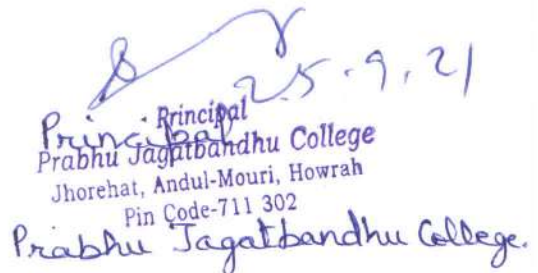 25.9.21
Principal
Principal
Prabhu Jagatbandhu College
Jhorehat, Andul-Mouri, Howrah
Pin Code-711 302
Prabhu Jagatbandhu College.